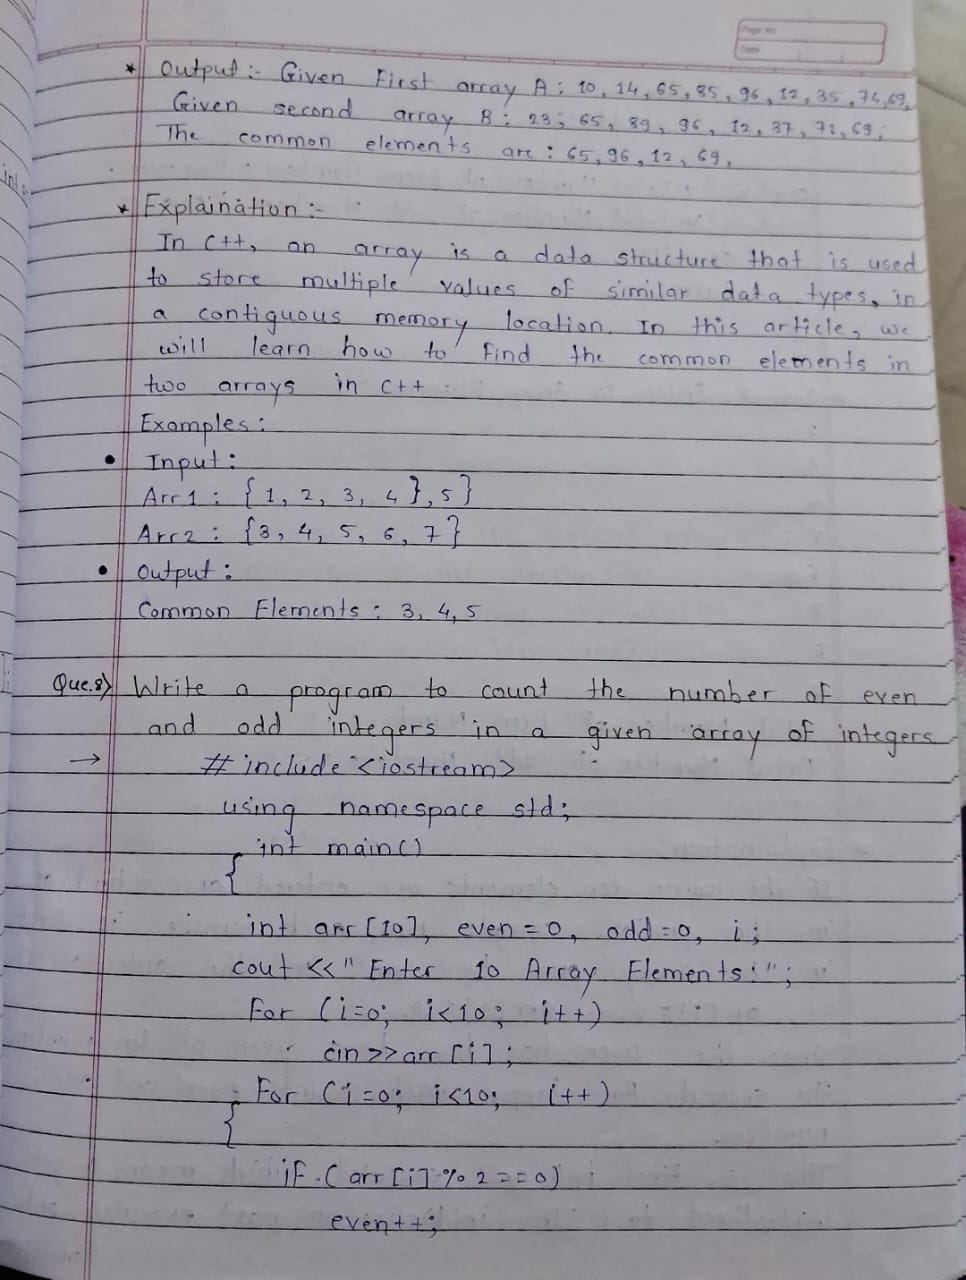 Page No
Date
* Output :- Given First array A : 10, 14, 65, 85, 96, 12, 35, 74, 69,
Given second array B : 23, 65, 89, 96, 12, 37, 71, 69,
The common elements are : 65, 96, 12, 69,
* Explaination :-
In C++, an array is a data structure that is used
to store multiple values of similar data types, in
a contiguous memory location. In this article, we
will learn how to find the common elements in
two arrays in C++
Examples :
• Input :
Arr1 : {1, 2, 3, 4 }, 5}
Arr2 : {3, 4, 5, 6, 7}
• Output :
Common Elements : 3, 4, 5
Que.8) Write a program to count the number of even
and odd integers in a given array of integers
→ # include <iostream>
using namespace std;
int main()
{
int arr [10], even = 0, odd = 0, i;
cout << " Enter 10 Array Elements: ";
For (i=0; i<10; i++)
cin >> arr [i];
For (i=0; i<10; i++)
{
if (arr [i] % 2 == 0)
even++;